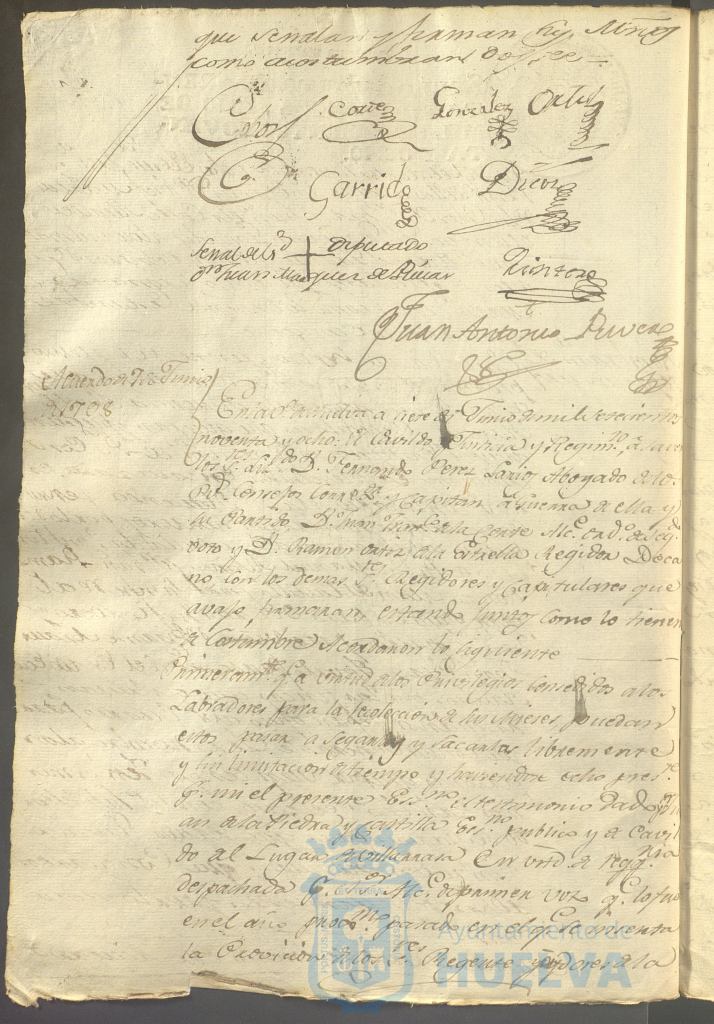 que señalan y firman
como acostumbran doy fee
Cortes Gonzalez Ortiz
Garrido
Señal del Sr + diputado
Dn Juan Marquez de
Quintero
Juan Antonio Rivera
Acuerdo de 7 de Junio
de 1798
En la Va de Huelva a siete de Junio de mil setecientos
noventa y ocho: El Cavildo Justicia y Regimto a saver
los Ses Ldo Dn Fernando Perez Larios Abogado de los
Rs Consejos Corregr y Capitan a Guerra de ella y
su Partido, Dn de la Corte Alce ordo de segdo
voto y Dn Ramon Ortiz de la Estrella Regidor Deca
no con los demas Ses Regidores y Capitulares que
avajo firmaran, estando juntos como lo tienen
de Costumbre Acordaron lo siguiente
Primeramte q a virtud de los Privilegios Concedidos a los
Labradores para la recoleccion de sus mieses puedan
estos pasar a segarlas y sacarlas libremente
y sin limitacion de tiempo y haviendose echo preste
pr mi el presente Essno el testimonio dado pr
de la Piedra y Castilla Essno publico y de Cavil
do del Lugar de Villarrasa En virtd de reqqria
despachada pr Alce de primer voto qe lo fue
en el año proxmo pasado en el qe se incerta
la Provision de los Ses Regente y oydores de la
Ayuntamiento de
HUELVA